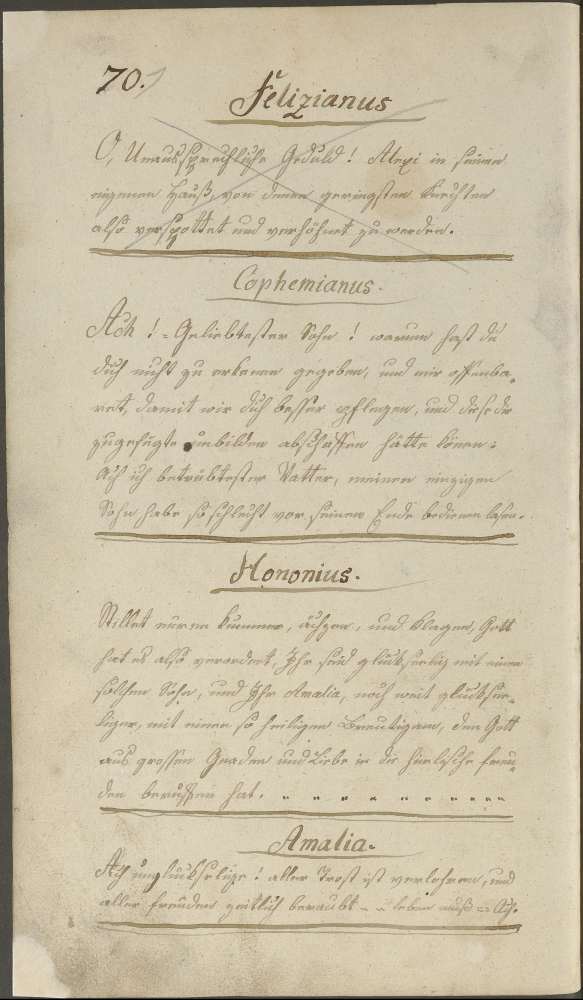 70.
Felizianus
O, Unaussprechliche Geduld! Alexi in seinen
eigenen Hauß, von denen geringsten Knechten
also verspottet und verhöhnet zu werden.
Cophemianus.
Ach! = Geliebtester Sohn! warum hast du
dich nicht zu erkenen gegeben, und mir offenba„
ret, damit wir dich besser pflegen, und diese dir
zugefügte unbilden abschaffen hätte könen:
Ach ich betrübtester Vatter, meinen einzigen
Sohn habe so schlecht vor seinem Ende bedienen lasen.
Hononius.
Stillet euren kummer, ächzen, und klagen, Gott
hat es also verordnet, Ihr seid glükseelig mit einen
solchen Sohn, und Ihr Amalia, noch weit glückseel„
liger, mit einen so heiligen Breutigam, den Gott
aus grossen Gnaden und Liebe in die himlische freu„
den beruffen hat.
Amalia.
Ach unglückselige! aller Trost ist verlohren, und
aller freuden zeitlich beraubt - - leben muß = Ach.